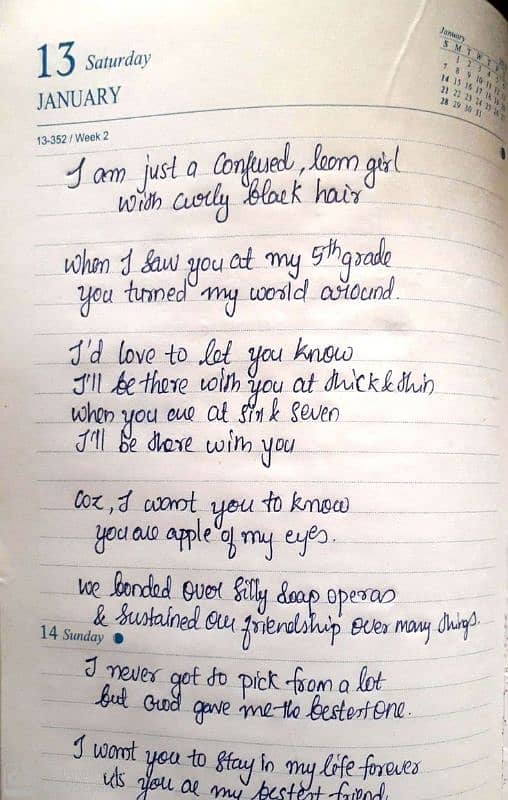 13 Saturday
JANUARY
January
S M T W T
1 2 3 4
7 8 9 10 11
14 15 16 17 18
21 22 23 24 25
28 29 30 31
13-352 / Week 2
I am just a Confused, loom girl
with curly black hair
when I saw you at my 5th grade
you turned my world around.
I'd love to let you know
I'll be there with you at thick & thin
when you are at six & seven
I'll be there with you
Coz, I want you to know
you are apple of my eyes.
we bonded over silly soap operas
& sustained our friendship over many things.
14 Sunday
I never got to pick from a lot
but God gave me the bestest one.
I want you to stay in my life forever
you are my bestest friend.